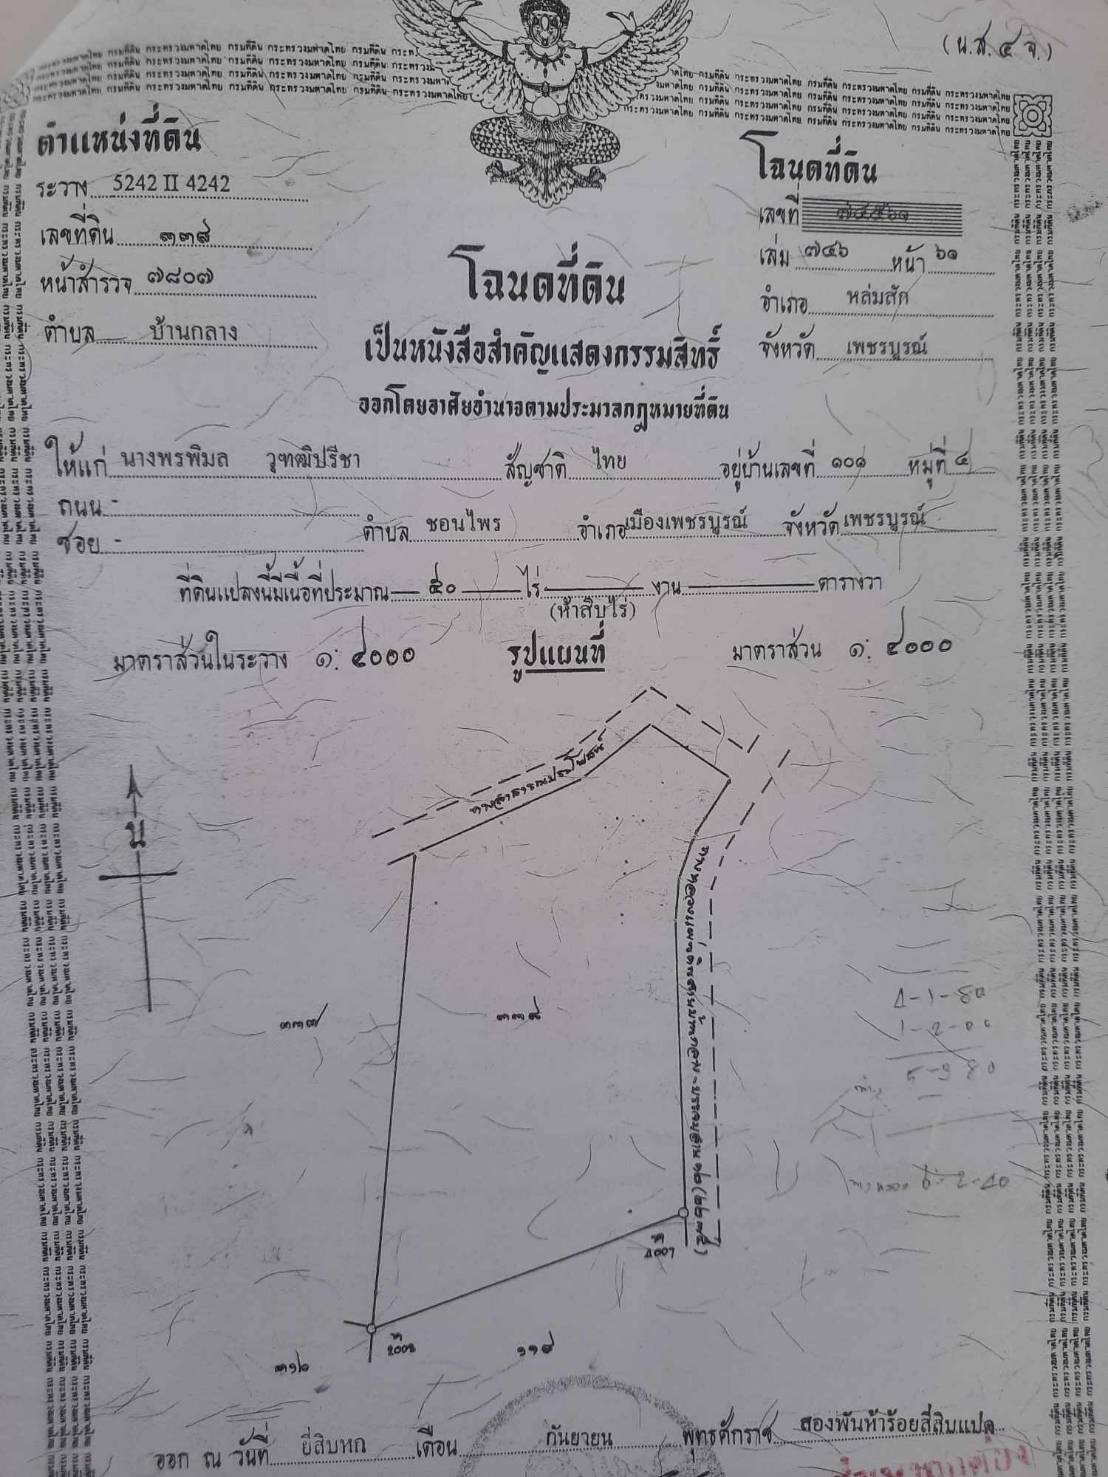 (น.ส.๔ จ.)
ตำแหน่งที่ดิน
ระวาง 5242 II 4242
เลขที่ดิน ๓๓๘
หน้าสำรวจ ๗๘๐๗
ตำบล บ้านกลาง
โฉนดที่ดิน
เลขที่ ๗๔๕๖๑
เล่ม ๗๔๖ หน้า ๖๑
อำเภอ หล่มสัก
จังหวัด เพชรบูรณ์
โฉนดที่ดิน
เป็นหนังสือสำคัญแสดงกรรมสิทธิ์
ออกโดยอาศัยอำนาจตามประมวลกฎหมายที่ดิน
ให้แก่ นางพรพิมล วุฑฒิปรีชา สัญชาติ ไทย อยู่บ้านเลขที่ ๑๐๑ หมู่ที่ ๔
ถนน -
ซอย - ตำบล ชอนไพร อำเภอ เมืองเพชรบูรณ์ จังหวัด เพชรบูรณ์
ที่ดินแปลงนี้มีเนื้อที่ประมาณ ๕๐ ไร่ งาน ตารางวา
(ห้าสิบไร่)
มาตราส่วนในระวาง ๑: ๔๐๐๐ รูปแผนที่ มาตราส่วน ๑: ๔๐๐๐
ทางสาธารณประโยชน์
น
๓๓๗ ๓๓๘
๓๑๖ ๑๑๘
ออก ณ วันที่ ยี่สิบหก เดือน กันยายน พุทธศักราช สองพันห้าร้อยสี่สิบแปด